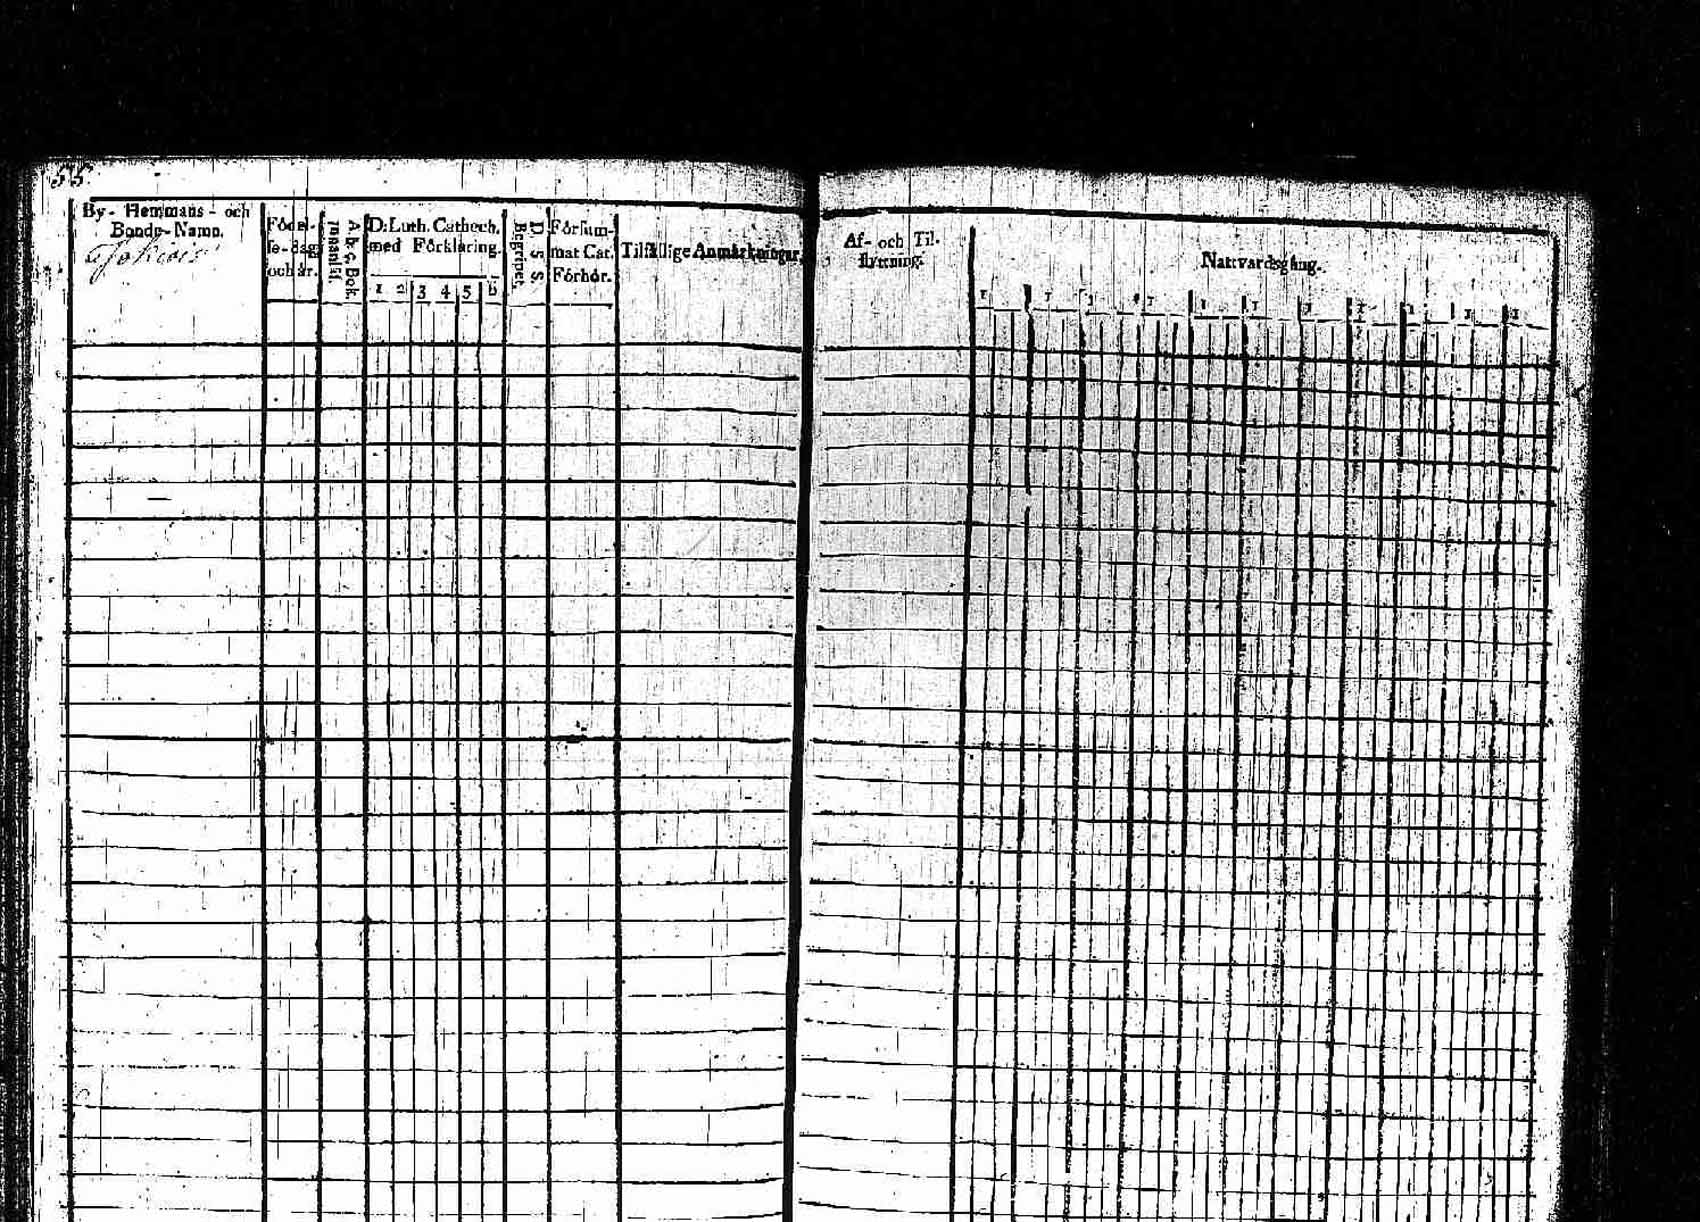 55.
By- Hemmans- och
Bonde-Namn.
Jokiois
Födel-
se-dag
och år.
A. b. c. Bok.
innanläs.
D: Luth. Cathech.
med Förklaring.
1 2 3 4 5 6
D. S. S.
Begripet.
Försum-
mat Cat.
Förhör.
Tilfällige Anmärkningar.
Af- och Til-
flyttning.
Nattvardsgång.
1 1 1 1 1 1 1 1 1 1 1